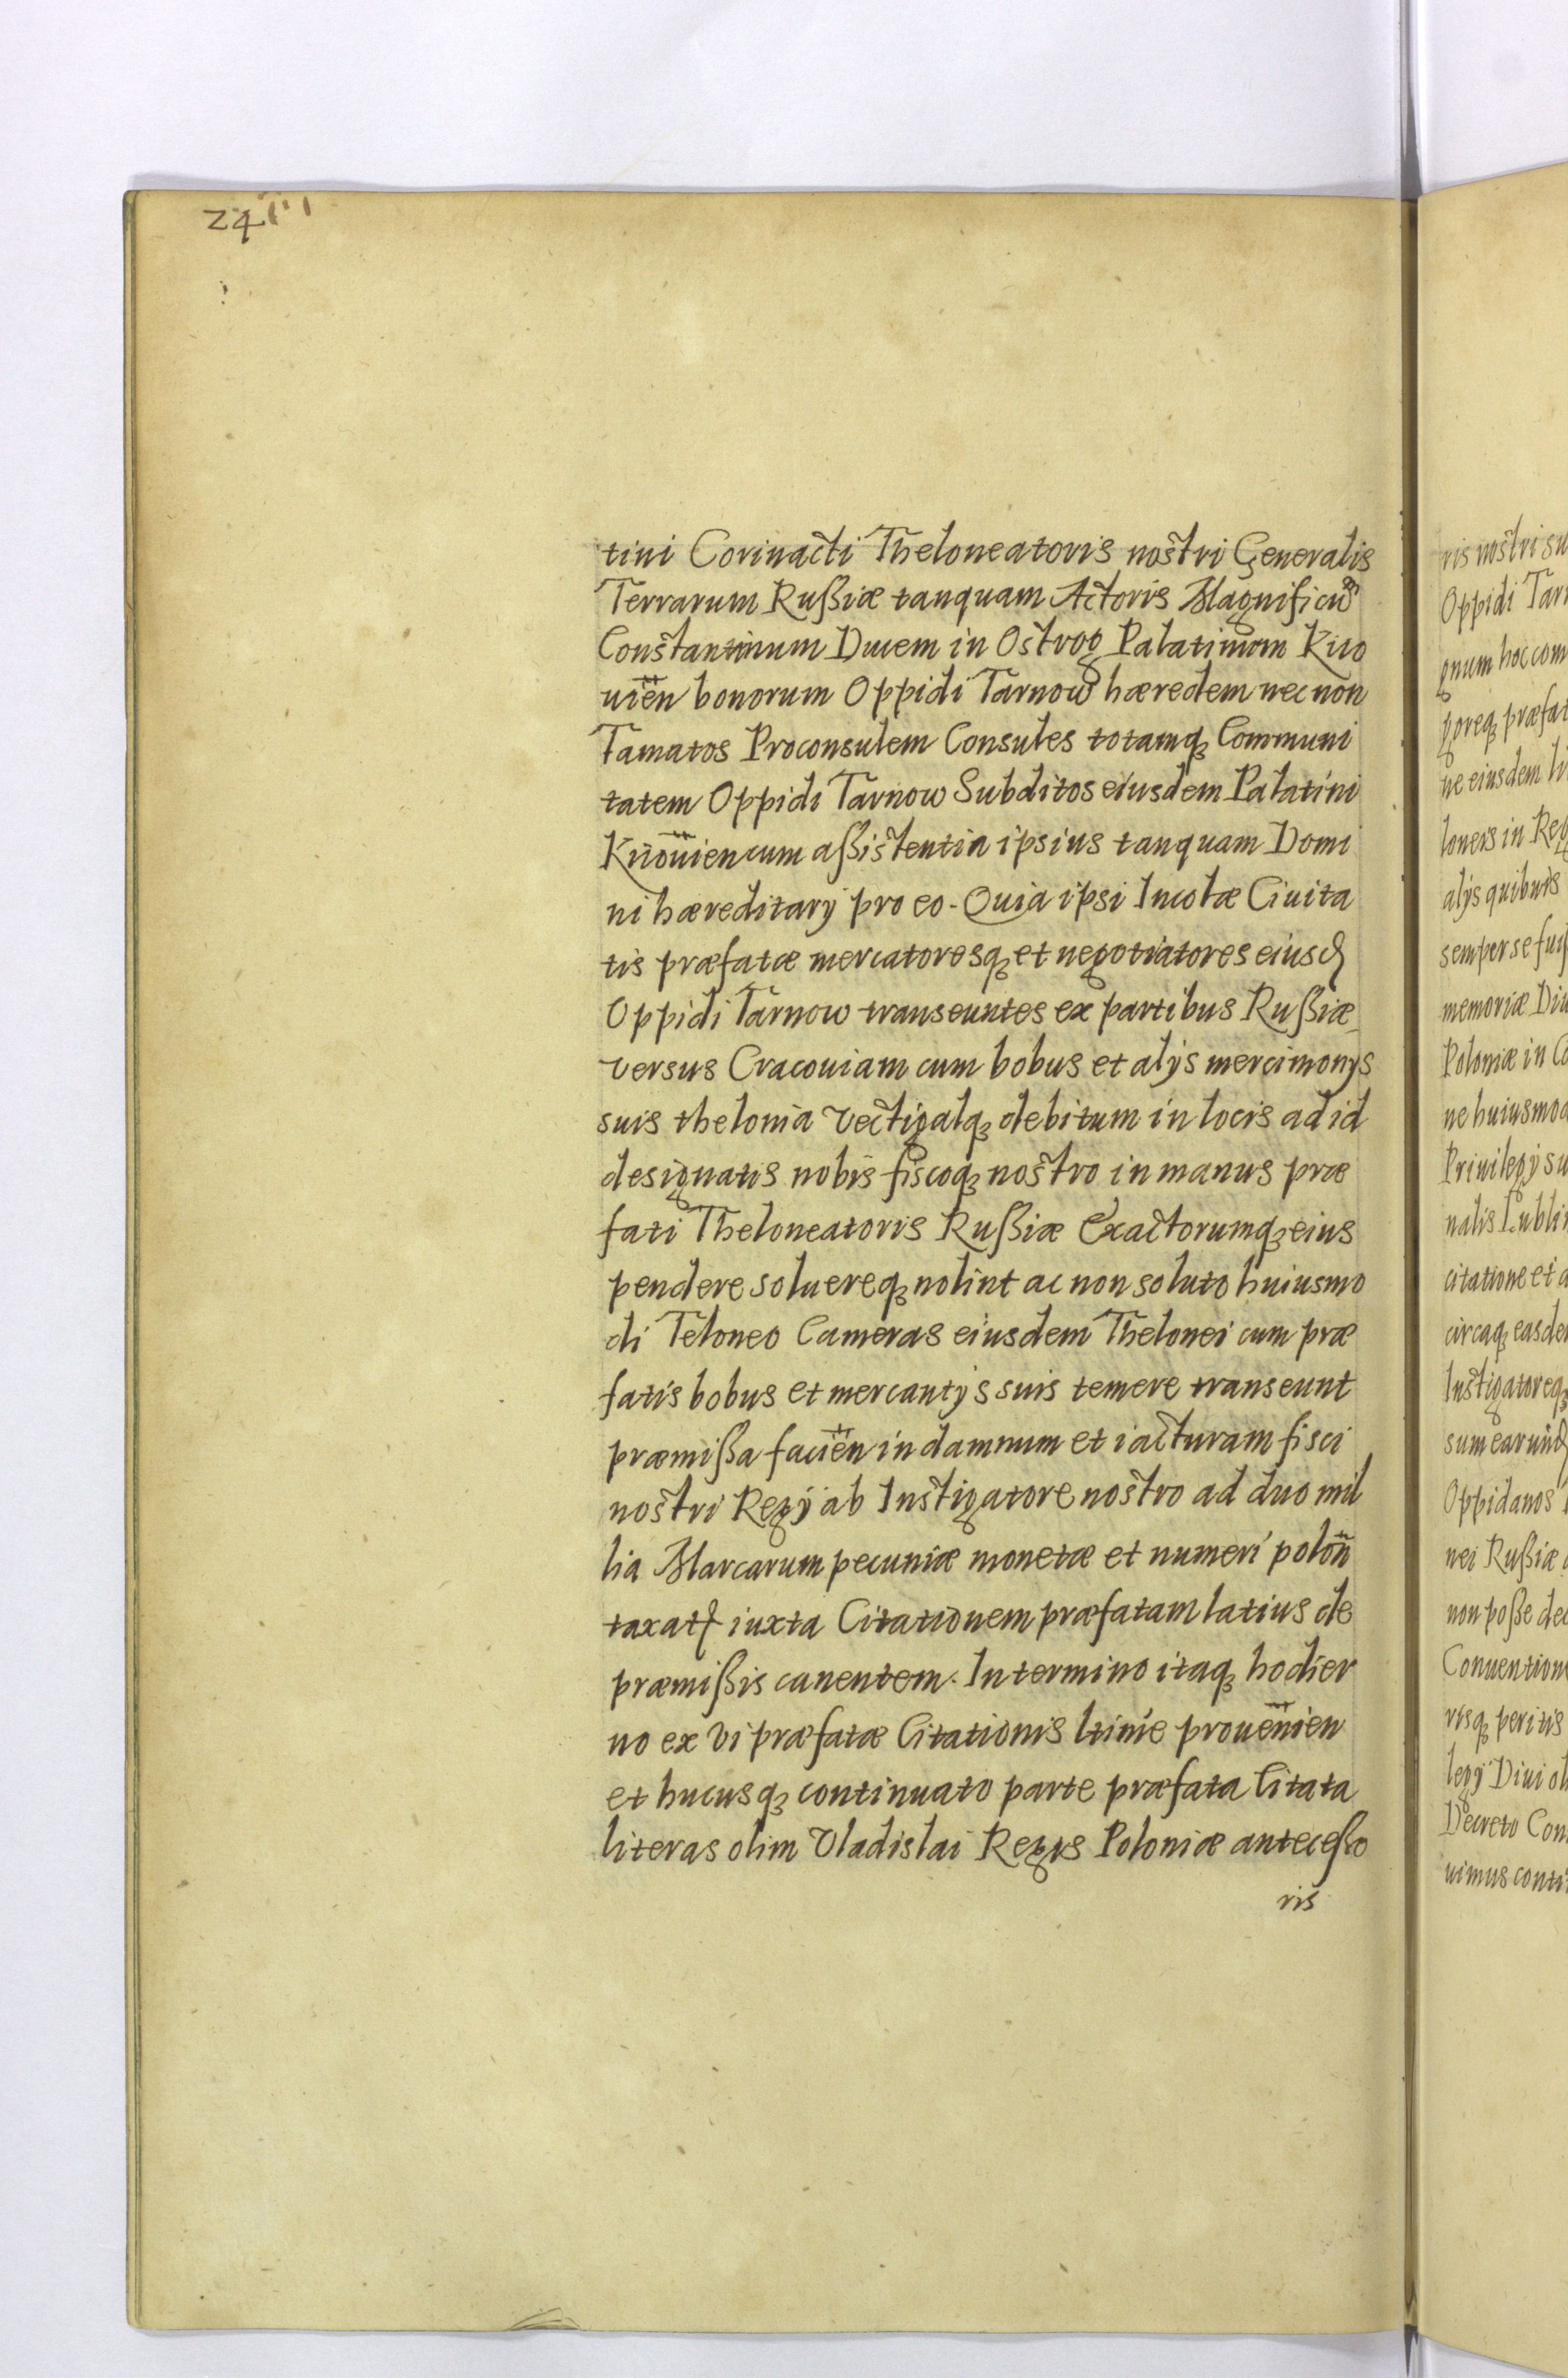 24
tini Corinacti Theloneatoris nostri Generalis
Terrarum Rußiæ tanquam Actoris Magnificũ
Constantinum Ducem in Ostrog Palatinum Kiio
uien̄ bonorum Oppidi Tarnow hæredem nec non
Famatos Proconsulem Consules totamqꝫ Communi
tatem Oppidi Tarnow Subditos eiusdem Palatini
Kiiouien̄ cum aßistentia ipsius tanquam Domi
ni hæreditarÿ pro eo. Quia ipsi Incolæ Ciuita
tis præfatæ mercatoresqꝫ et negotiatores eiusd
Oppidi Tarnow transeuntes ex partibus Rußiæ
versus Cracouiam cum bobus et alÿs mercimonÿs
suis thelonia vectigalqꝫ debitum in locis ad id
designatis nobis fiscoqꝫ nostro in manus præ
fati Theloneatoris Rußiæ Exactorumqꝫ eius
pendere soluereqꝫ nolint ac non soluto huiusmo
di Teloneo Cameras eiusdem Thelonei cum præ
fatis bobus et mercantÿs suis temere transeunt
præmißa facien̄ in damnum et iacturam fisci
nostri Regÿ ab Instigatore nostro ad duo mil
lia Marcarum pecuniæ monetæ et numeri polon̄
taxat iuxta Citationem præfatam latius de
præmißis canentem. In termino itaqꝫ hodier
no ex vi præfatæ Citationis ltime prouenien̄
et hucusqꝫ continuato parte præfata Citata
literas olim Vladislai Regis Poloniæ anteceßo
ris
ris nostri su
Oppidi Tar
gnum hoc com
poreqꝫ præfat
ne eiusdem li
loneis in Reg
alÿs quibuis
semper se fui
memoriæ Diu
Poloniæ in C
ne huiusmod
Priuilegÿ su
nalis Lublin
citatione et a
circaqꝫ easde
Instigatoreqꝫ
sum earund
Oppidanos
nei Rußiæ
non poße dec
Conuention
risqꝫ peritis
legÿ Diui ol
Decreto Con
uimus conti